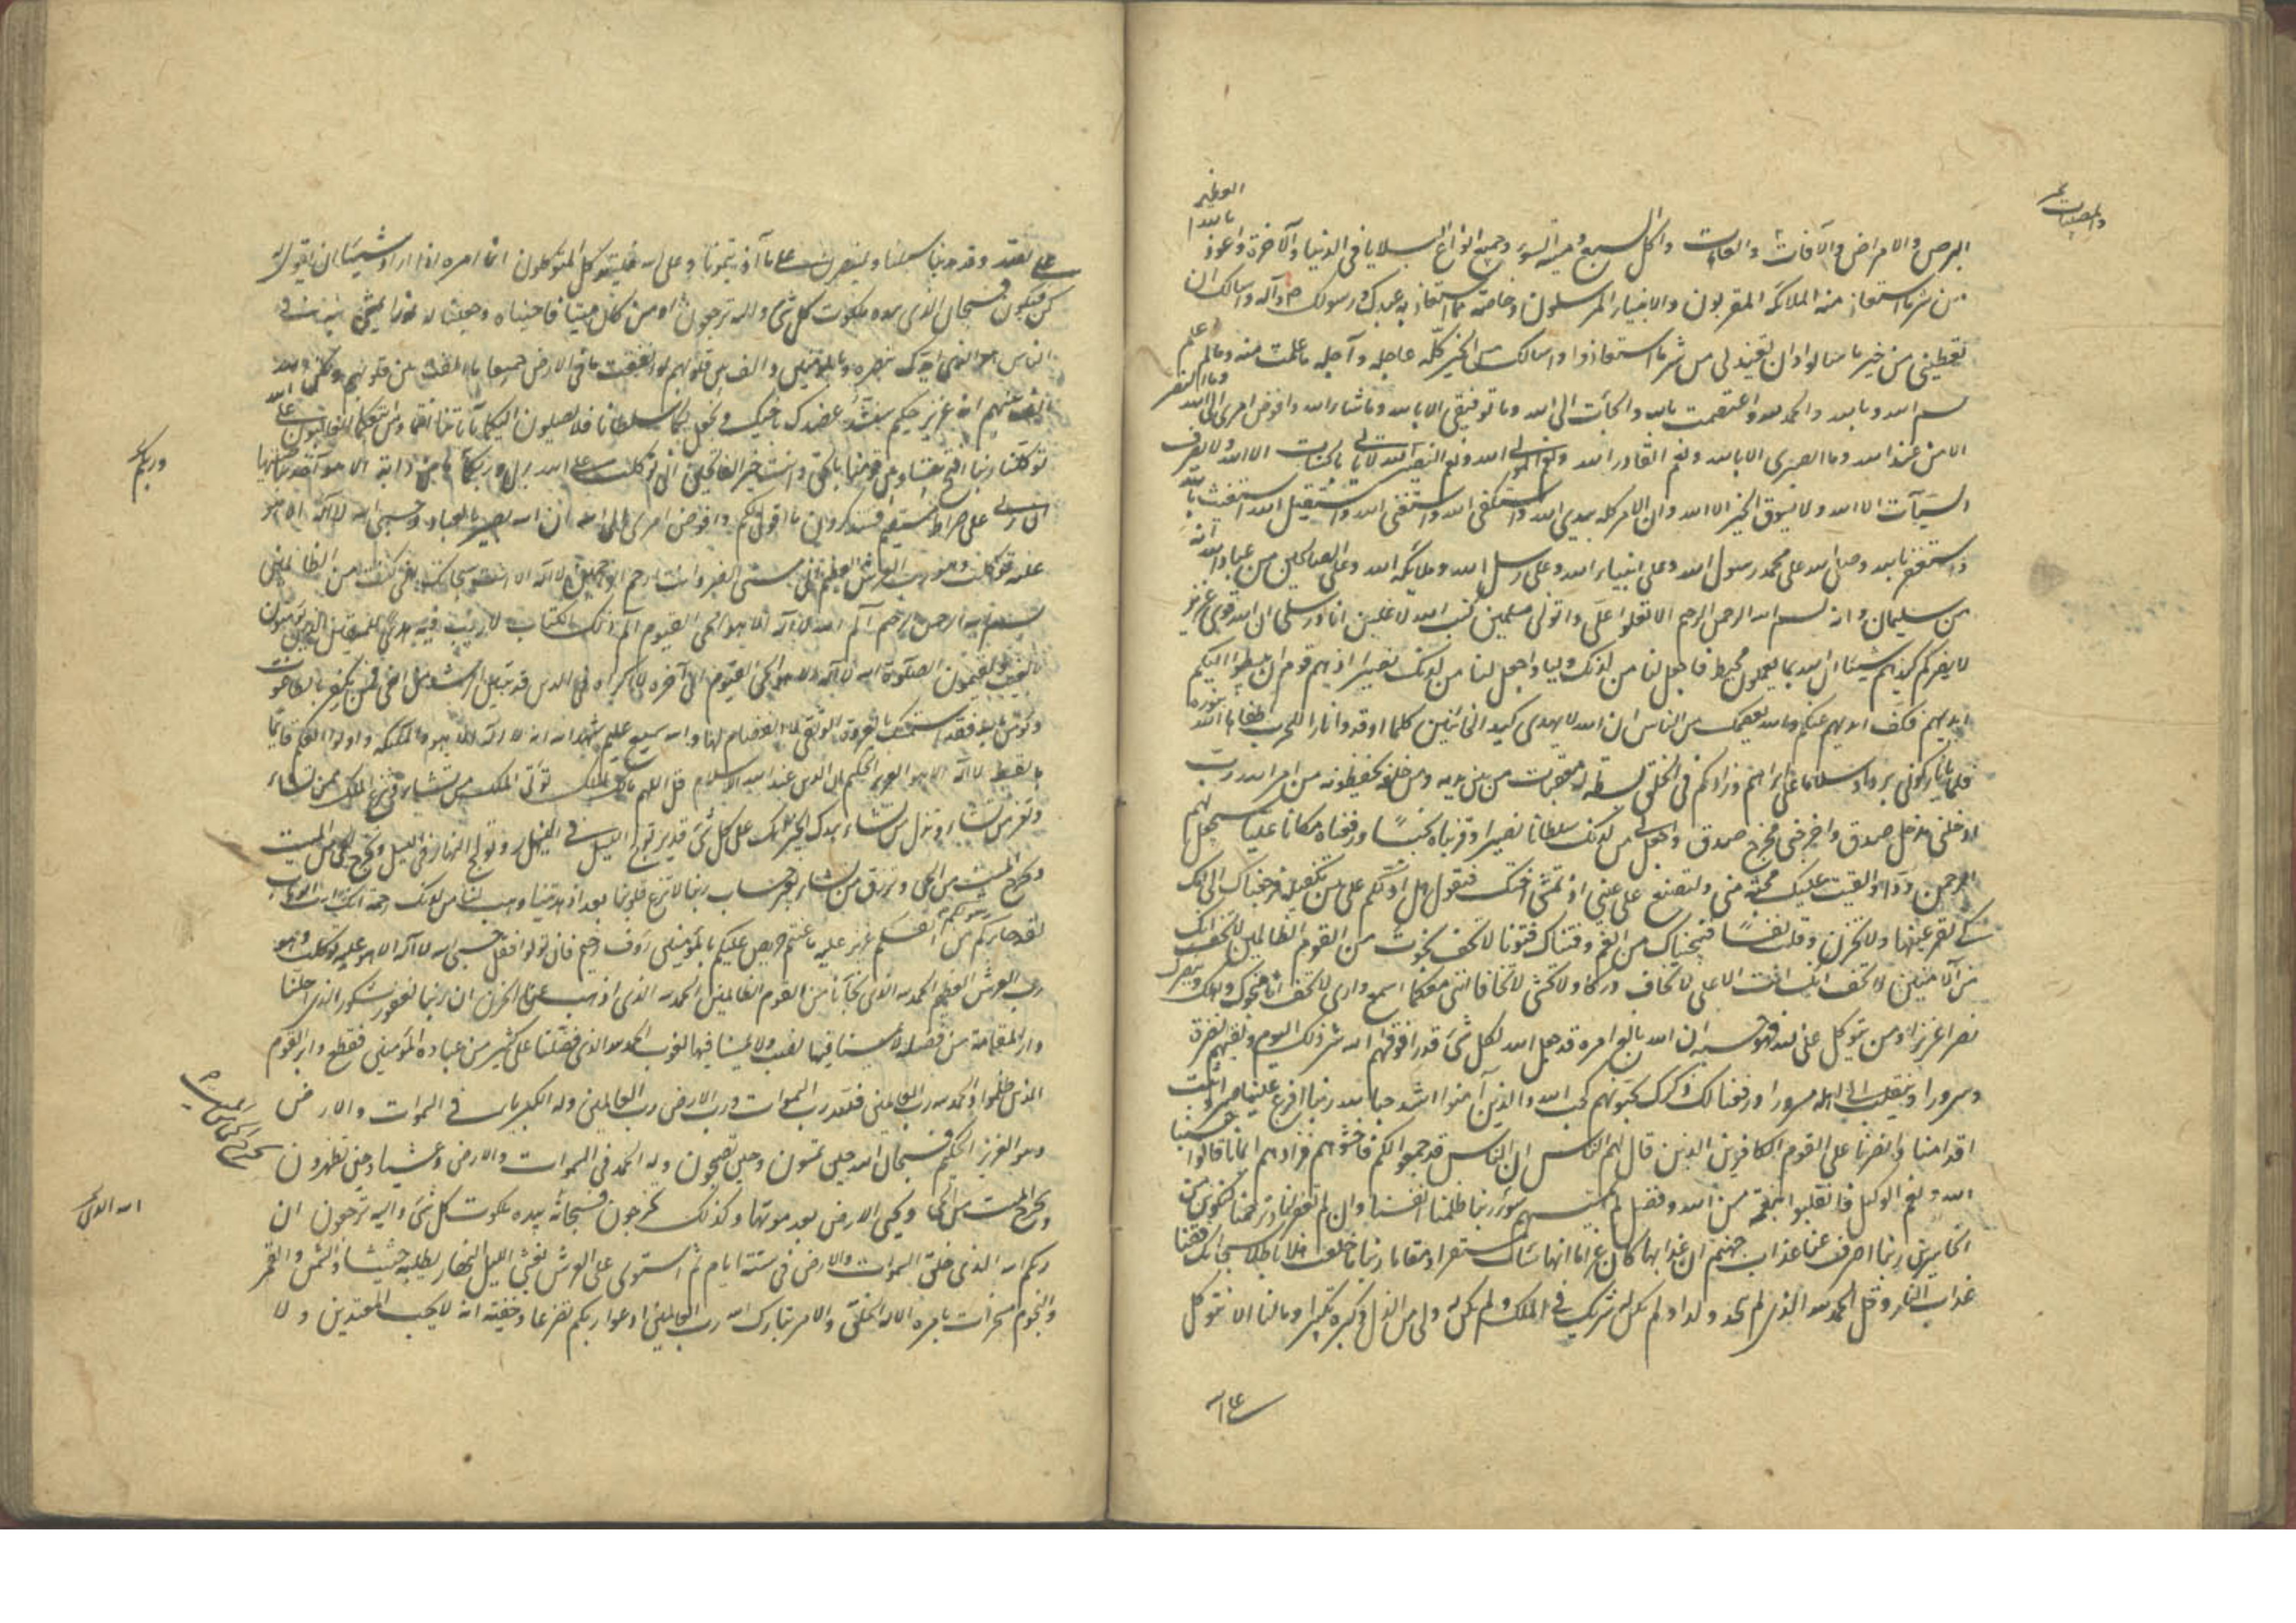 البرص والامراض والآفات والعاهات واكل السبع وميتة السوء وجميع انواع البلايا فى الدنيا والآخرة واعوذ
والمصيبات
العظيم
بالله
من شر ما استعاذ منه الملائكة المقربون والانبياء المرسلون وخاصة مما استعاذ به عبدك ورسولك ص وآله واسالك ان
تعطينى من خير ما سالوا وان تعيذنى من شر ما استعاذوا واسالك من الخير كله عاجله وآجله ما علمت منه وما لم اعلم
بسم الله وبالله والحمد لله واعتصمت بالله والجأت الى الله وما توفيقى الا بالله وما شاء الله وافوض امرى الى الله
وما النصر
الا من عند الله وما الصبرى الا بالله ونعم القادر الله ونعم المولى الله ونعم النصير الله لا ياتى بالحسنات الا الله ولا يصرف
السيآت الا الله ولا يسوق الخير الا الله وان الامر كله بيدى الله واستكفى الله واستغنى الله واستقيل الله استغيث بالله
واستغفر الله وصلى الله على محمد رسول الله وعلى انبياء الله وعلى رسل الله وملائكة الله وعلى الصالحين من عباد الله انه
من سليمان وانه بسم الله الرحمن الرحيم الا تعلوا على واتونى مسلمين كتب الله لاغلبن انا ورسلى ان الله قوى عزيز
لا يضركم كيدهم شيئا ان الله بما يعملون محيط فاجعل لنا من لدنك وليا واجعل لنا من لدنك نصيرا اذ هم قوم ان يبسطوا اليكم
ايديهم فكف ايديهم عنكم والله يعصمك من الناس ان الله لا يهدى كيد الخائنين كلما اوقدوا نارا للحرب اطفاها الله
قلنا يا نار كونى بردا وسلاما على ابراهيم وزادكم فى الخلق بسطة له معقبات من بين يديه ومن خلفه يحفظونه من امر الله رب
ادخلنى مدخل صدق واخرجنى مخرج صدق واجعل لى من لدنك سلطانا نصيرا وقربناه نجيا ورفعناه مكانا عليا سيجعل لهم
الرحمن ودا والقيت عليك محبة منى ولتصنع على عينى اذ تمشى اختك فتقول هل ادلكم على من يكفله فرجعناك الى امك
كى تقر عينها ولا تحزن وقتلت نفسا فنجيناك من الغم وفتناك فتونا لا تخف نجوت من القوم الظالمين لا تخف انك
من الآمنين لا تخف انك انت الاعلى لا تخاف دركا ولا تخشى لا تخافا اننى معكما اسمع وارى لا تخف انا منجوك واهلك وينصرك
نصرا عزيزا ومن يتوكل على الله فهو حسبه ان الله بالغ امره قد جعل الله لكل شئ قدرا فوقهم الله شر ذلك اليوم ولقيهم نضرة
وسرورا وينقلب الى اهله مسرورا ورفعنا لك ذكرك يحبونهم كحب الله والذين آمنوا اشد حبا لله ربنا افرغ علينا صبرا وثبت
اقدامنا وانصرنا على القوم الكافرين الذين قال لهم الناس ان الناس قد جمعوا لكم فاخشوهم فزادهم ايمانا قالوا حسبنا
الله ونعم الوكيل فانقلبوا بنعمة من الله وفضل لم يمسسهم سوء ربنا ظلمنا انفسنا وان لم تغفر لنا وترحمنا لنكونن من
الخاسرين ربنا اصرف عنا عذاب جهنم ان عذابها كان غراما انها ساءت مستقرا ومقاما ربنا ما خلقت هذا باطلا سبحانك فقنا
عذاب النار وقل الحمد لله الذى لم يتخذ ولدا ولم يكن له شريك فى الملك ولم يكن له ولى من الذل وكبره تكبيرا وما لنا الا نتوكل
على الله
على الله وقد هدينا سبلنا ولنصبرن على ما آذيتمونا وعلى الله فليتوكل المتوكلون انما امره اذا اراد شيئا ان يقول له
كن فيكون فسبحان الذى بيده ملكوت كل شئ واليه ترجعون او من كان ميتا فاحييناه وجعلنا له نورا يمشى به فى
الناس هو الذى ايدك بنصره وبالمؤمنين والف بين قلوبهم لو انفقت ما فى الارض جميعا ما الفت بين قلوبهم ولكن الله
الف بينهم انه عزيز حكيم سنشد عضدك باخيك ونجعل لكما سلطانا فلا يصلون اليكما بآياتنا انتما ومن اتبعكما الغالبون على الله
توكلنا ربنا افتح بيننا وبين قومنا بالحق وانت خير الفاتحين انى توكلت على الله ربى وربكم ما من دابة الا هو آخذ بناصيتها
وربكم
ان ربى على صراط مستقيم فستذكرون ما اقول لكم وافوض امرى الى الله ان الله بصير بالعباد وحسبى الله لا اله الا هو
عليه توكلت وهو رب العرش العظيم انى مسنى الضر وانت ارحم الراحمين لا اله الا انت سبحانك انى كنت من الظالمين
بسم الله الرحمن الرحيم الم الله لا اله الا هو الحى القيوم الم ذلك الكتاب لا ريب فيه هدى للمتقين الذين يؤمنون
بالغيب ويقيمون الصلوة الله لا اله الا هو الحى القيوم الى آخره لا اكراه فى الدين قد تبين الرشد من الغى فمن يكفر بالطاغوت
ويؤمن بالله فقد استمسك بالعروة الوثقى لا انفصام لها والله سميع عليم شهد الله انه لا اله الا هو والملئكة واولوا العلم قائما
بالقسط لا اله الا هو العزيز الحكيم ان الدين عند الله الاسلام قل اللهم مالك الملك تؤتى الملك من تشاء وتنزع الملك ممن تشاء
وتعز من تشاء وتذل من تشاء بيدك الخير انك على كل شئ قدير تولج الليل فى النهار وتولج النهار فى الليل وتخرج الحى من الميت
وتخرج الميت من الحى وترزق من تشاء بغير حساب ربنا لا تزغ قلوبنا بعد اذ هديتنا وهب لنا من لدنك رحمة انك انت الوهاب
لقد جاءكم رسول من انفسكم عزيز عليه ما عنتم حريص عليكم بالمؤمنين رؤف رحيم فان تولوا فقل حسبى الله لا اله الا هو عليه توكلت وهو
رب العرش العظيم الحمد لله الذى نجانا من القوم الظالمين الحمد لله الذى اذهب عنا الحزن ان ربنا لغفور شكور الذى احلنا
دار المقامة من فضله لا يمسنا فيها نصب ولا يمسنا فيها لغوب الحمد لله الذى فضلنا على كثير من عباده المؤمنين فقطع دابر القوم
الذين ظلموا والحمد لله رب العالمين فلله رب السموات ورب الارض رب العالمين وله الكبرياء فى السموات والارض
وهو العزيز الحكيم فسبحان الله حين تمسون وحين تصبحون وله الحمد فى السموات والارض وعشيا وحين تظهرون
يخرج الحى من الميت
ويخرج الميت من الحى ويحيى الارض بعد موتها وكذلك تخرجون فسبحان الذى بيده ملكوت كل شئ واليه ترجعون ان
ربكم الله الذى خلق السموات والارض فى ستة ايام ثم استوى على العرش يغشى الليل النهار يطلبه حثيثا والشمس والقمر
والنجوم مسخرات بامره الا له الخلق والامر تبارك الله رب العالمين ادعوا ربكم تضرعا وخفية انه لا يحب المعتدين ولا